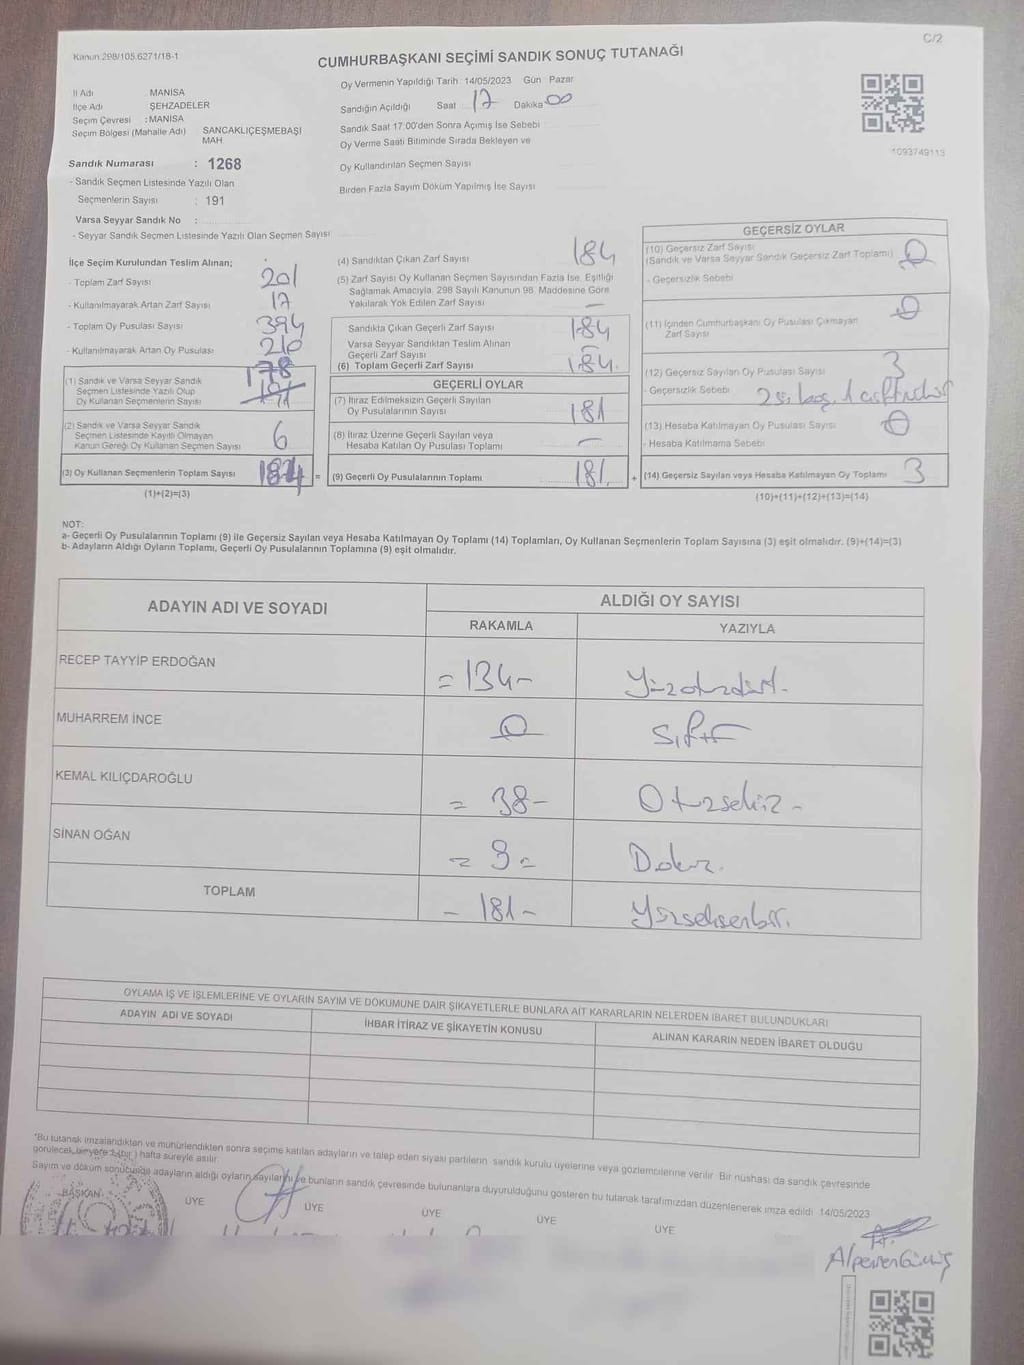 C/2
Kanun:298/105.6271/18-1
CUMHURBAŞKANI SEÇİMİ SANDIK SONUÇ TUTANAĞI
İl Adı : MANİSA
İlçe Adı : ŞEHZADELER
Seçim Çevresi : MANİSA
Seçim Bölgesi (Mahalle Adı) SANCAKLIÇEŞMEBAŞI MAH
Sandık Numarası : 1268
- Sandık Seçmen Listesinde Yazılı Olan
Seçmenlerin Sayısı : 191
Varsa Seyyar Sandık No :
- Seyyar Sandık Seçmen Listesinde Yazılı Olan Seçmen Sayısı
Oy Vermenin Yapıldığı Tarih 14/05/2023 Gün : Pazar
Sandığın Açıldığı Saat 17 Dakika 00
Sandık Saat 17:00'den Sonra Açımış İse Sebebi
Oy Verme Saati Bitiminde Sırada Bekleyen ve
Oy Kullandırılan Seçmen Sayısı
Birden Fazla Sayım Döküm Yapılmış İse Sayısı
1093749113
İlçe Seçim Kurulundan Teslim Alınan;
- Toplam Zarf Sayısı 201
- Kullanılmayarak Artan Zarf Sayısı 17
- Toplam Oy Pusulası Sayısı 394
- Kullanılmayarak Artan Oy Pusulası 210
178
(1) Sandık ve Varsa Seyyar Sandık
Seçmen Listesinde Yazılı Olup
Oy Kullanan Seçmenlerin Sayısı
(2) Sandık ve Varsa Seyyar Sandık
Seçmen Listesinde Kayıtlı Olmayan
Kanun Gereği Oy Kullanan Seçmen Sayısı 6
(3) Oy Kullanan Seçmenlerin Toplam Sayısı 184 =
(1)+(2)=(3)
(4) Sandıktan Çıkan Zarf Sayısı 184
(5) Zarf Sayısı Oy Kullanan Seçmen Sayısından Fazla İse, Eşitliği
Sağlamak Amacıyla, 298 Sayılı Kanunun 98. Maddesine Göre
Yakılarak Yok Edilen Zarf Sayısı –
Sandıkta Çıkan Geçerli Zarf Sayısı 184
Varsa Seyyar Sandıktan Teslim Alınan
Geçerli Zarf Sayısı –
(6) Toplam Geçerli Zarf Sayısı 184.
GEÇERLİ OYLAR
(7) İtiraz Edilmeksizin Geçerli Sayılan
Oy Pusulalarının Sayısı 181
(8) İtiraz Üzerine Geçerli Sayılan veya
Hesaba Katılan Oy Pusulası Toplamı –
(9) Geçerli Oy Pusulalarının Toplamı 181. +
GEÇERSİZ OYLAR
(10) Geçersiz Zarf Sayısı
(Sandık ve Varsa Seyyar Sandık Geçersiz Zarf Toplamı) 0
- Geçersizlik Sebebi
(11) İçinden Cumhurbaşkanı Oy Pusulası Çıkmayan
Zarf Sayısı 0
(12) Geçersiz Sayılan Oy Pusulası Sayısı 3
- Geçersizlik Sebebi
(13) Hesaba Katılmayan Oy Pusulası Sayısı 0
- Hesaba Katılmama Sebebi
(14) Geçersiz Sayılan veya Hesaba Katılmayan Oy Toplamı 3
(10)+(11)+(12)+(13)=(14)
NOT:
a- Geçerli Oy Pusulalarının Toplamı (9) ile Geçersiz Sayılan veya Hesaba Katılmayan Oy Toplamı (14) Toplamları, Oy Kullanan Seçmenlerin Toplam Sayısına (3) eşit olmalıdır. (9)+(14)=(3)
b- Adayların Aldığı Oyların Toplamı, Geçerli Oy Pusulalarının Toplamına (9) eşit olmalıdır.
ADAYIN ADI VE SOYADI
ALDIĞI OY SAYISI
RAKAMLA YAZIYLA
RECEP TAYYİP ERDOĞAN = 134– Yüzotuzdört.
MUHARREM İNCE 0 Sıfır
KEMAL KILIÇDAROĞLU = 38– Otuzsekiz –
SİNAN OĞAN = 9 = Dokuz.
TOPLAM – 181 – Yüzseksenbir.
OYLAMA İŞ VE İŞLEMLERİNE VE OYLARIN SAYIM VE DÖKÜMÜNE DAİR ŞİKAYETLERLE BUNLARA AİT KARARLARIN NELERDEN İBARET BULUNDUKLARI
ADAYIN ADI VE SOYADI İHBAR İTİRAZ VE ŞİKAYETİN KONUSU ALINAN KARARIN NEDEN İBARET OLDUĞU
*Bu tutanak imzalandıktan ve mühürlendikten sonra seçime katılan adayların ve talep eden siyasi partilerin sandık kurulu üyelerine veya gözlemcilerine verilir. Bir nüshası da sandık çevresinde
görülecek bir yere 1 (bir ) hafta süreyle asılır.
Sayım ve döküm sonucunda adayların aldığı oyların sayılarını ve bunların sandık çevresinde bulunanlara duyurulduğunu gösteren bu tutanak tarafımızdan düzenlenerek imza edildi 14/05/2023
BAŞKAN ÜYE ÜYE ÜYE ÜYE ÜYE